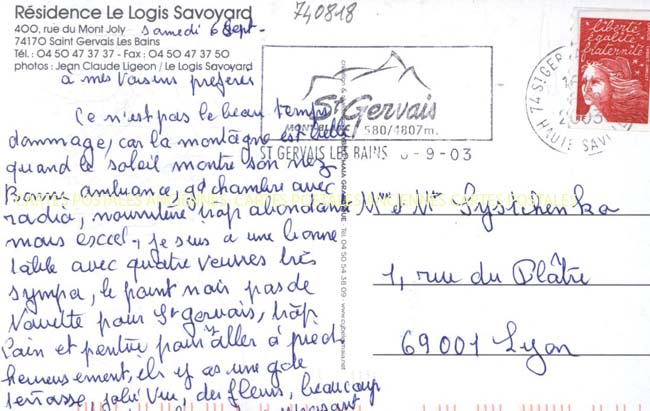 Résidence Le Logis Savoyard
400, rue du Mont Joly - samedi 6 Sept-
74170 Saint Gervais Les Bains
Tél. : 04 50 47 37 37 - Fax : 04 50 47 37 50
photos : Jean Claude Ligeon / Le Logis Savoyard
740818
à mes Voisins préférés
Ce n'est pas le beau temps
dommage, car la montagne est belle
quand le soleil montre son nez
Bonne ambiance, gd chambre avec
radio, nourriture trop abondante
mais excel-, je suis a une bonne
table avec quatre veuves très
sympa, le point noir pas de
Navette pour St gervais, trop
loin et pour aller à pied
heureusement, il y as une gde
terrasse, jolie Vue, des fleurs, beaucoup
St Gervais
MONT-BLANC 580/4807m.
ST GERVAIS LES BAINS 6-9-03
74 ST GERVAIS
2003
HAUTE SAVOIE
liberté
égalité
fraternité
CARTES POSTALES ANCIENNES CARTES POSTALES ANCIENNES CARTES POSTALES
TEL. 04 50 54 38 09
Mme et Mr Systchenko
1, rue du Plâtre
69001 Lyon